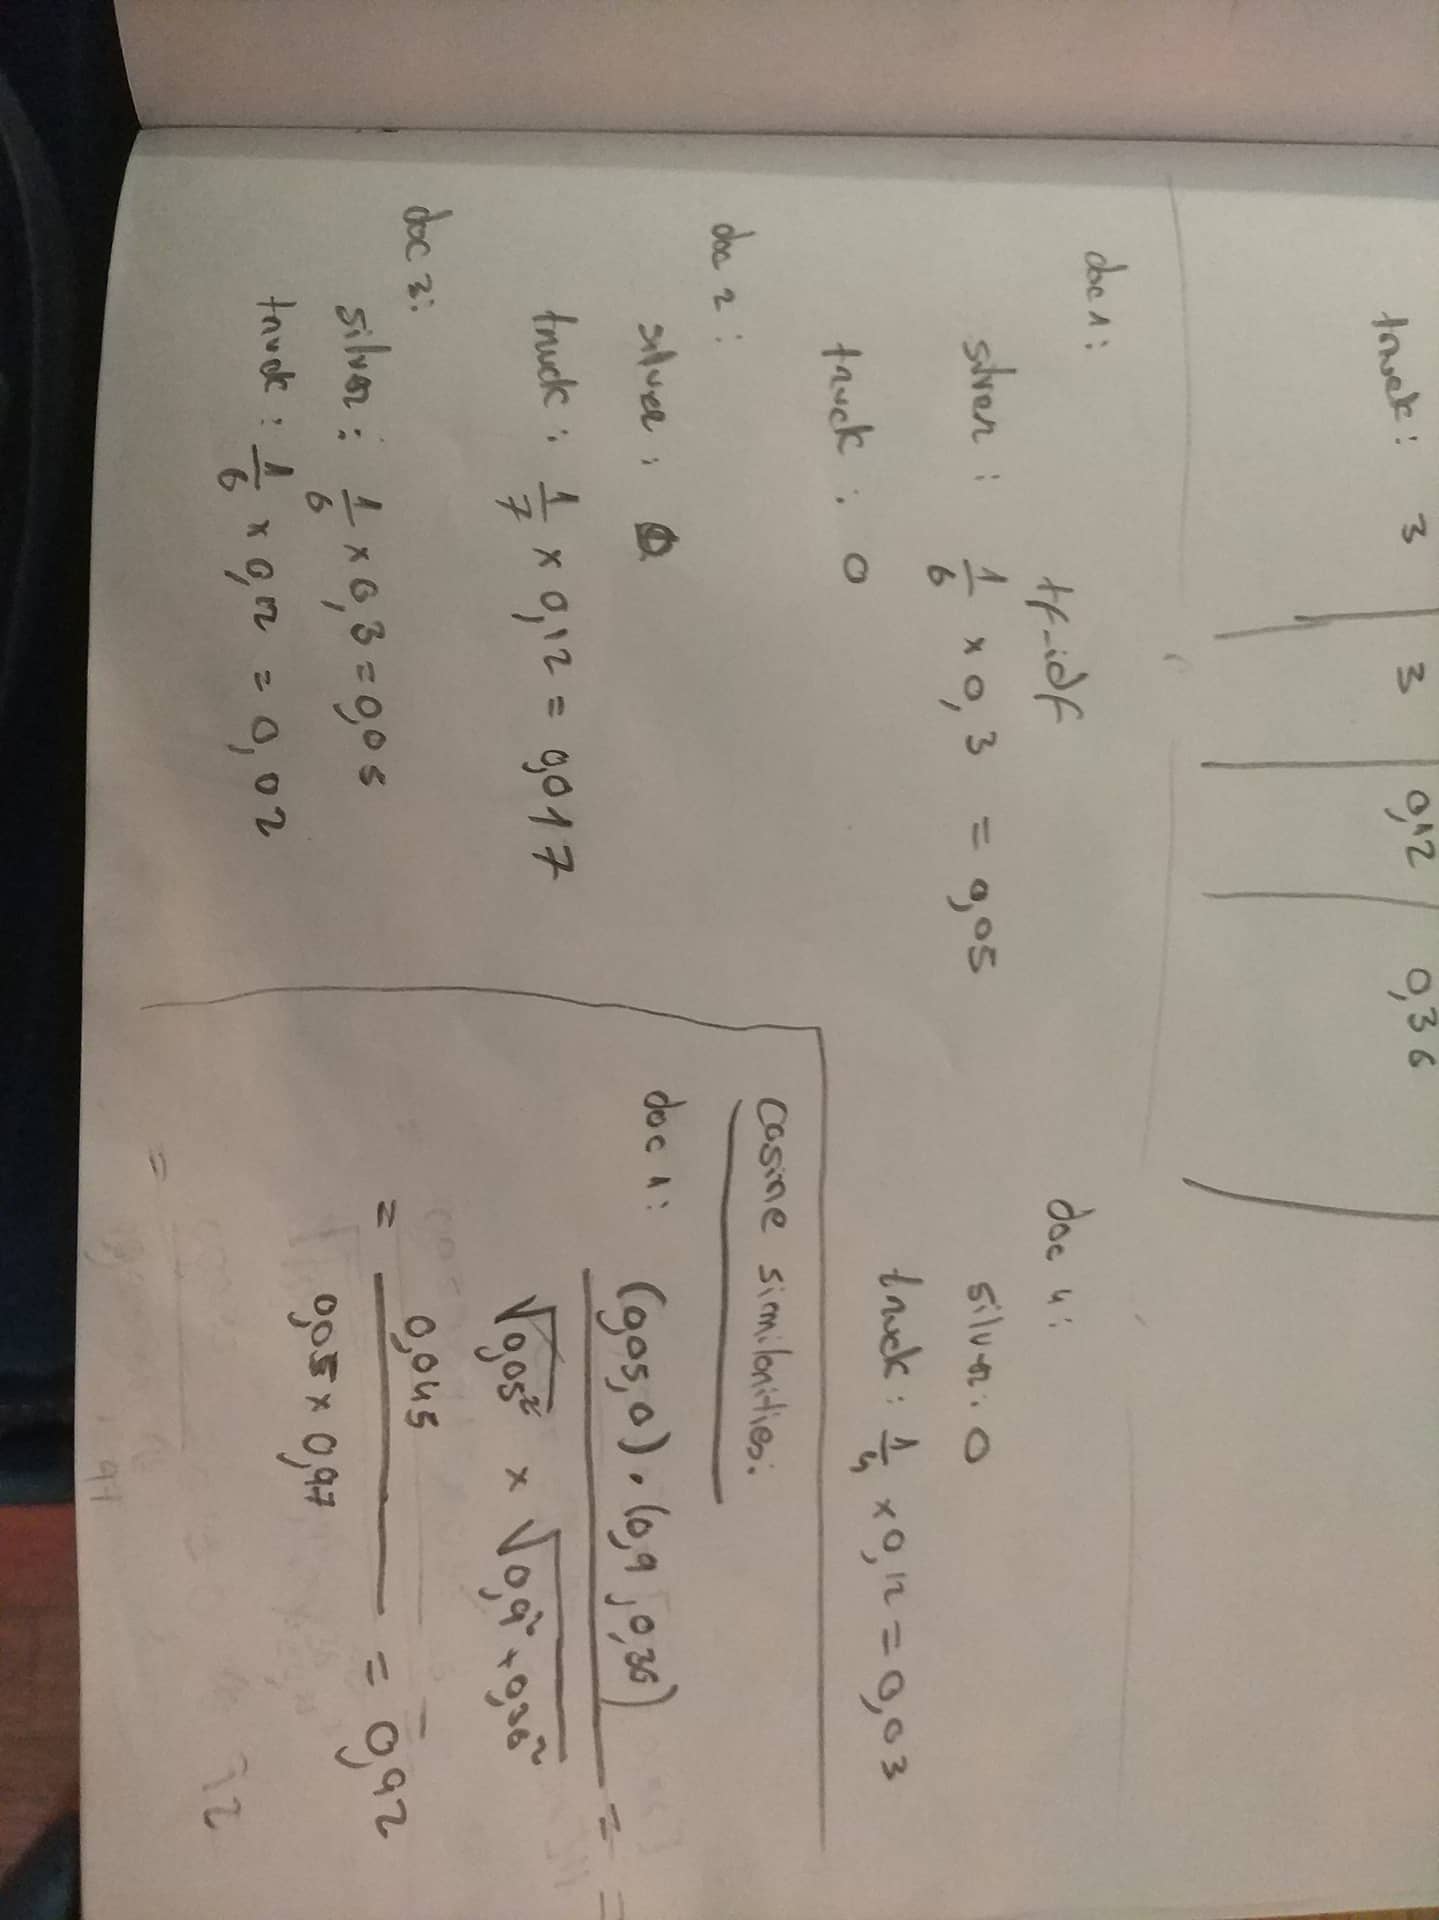 truck: 3 3 0,12 0,36
tf-idf
doc 1:
silver: 1/6 × 0,3 = 0,05
truck: 0
doc 2:
silver: 0
truck: 1/7 × 0,12 = 0,017
doc 3:
silver: 1/6 × 0,3 = 0,05
truck: 1/6 × 0,12 = 0,02
doc 4:
silver: 0
truck: 1/4 × 0,12 = 0,03
Cosine similarities:
doc 1: (0,05, 0) · (0,9, 0,36) / √0,05² × √0,9² + 0,36² =
= 0,045 / 0,05 × 0,97 = 0,92